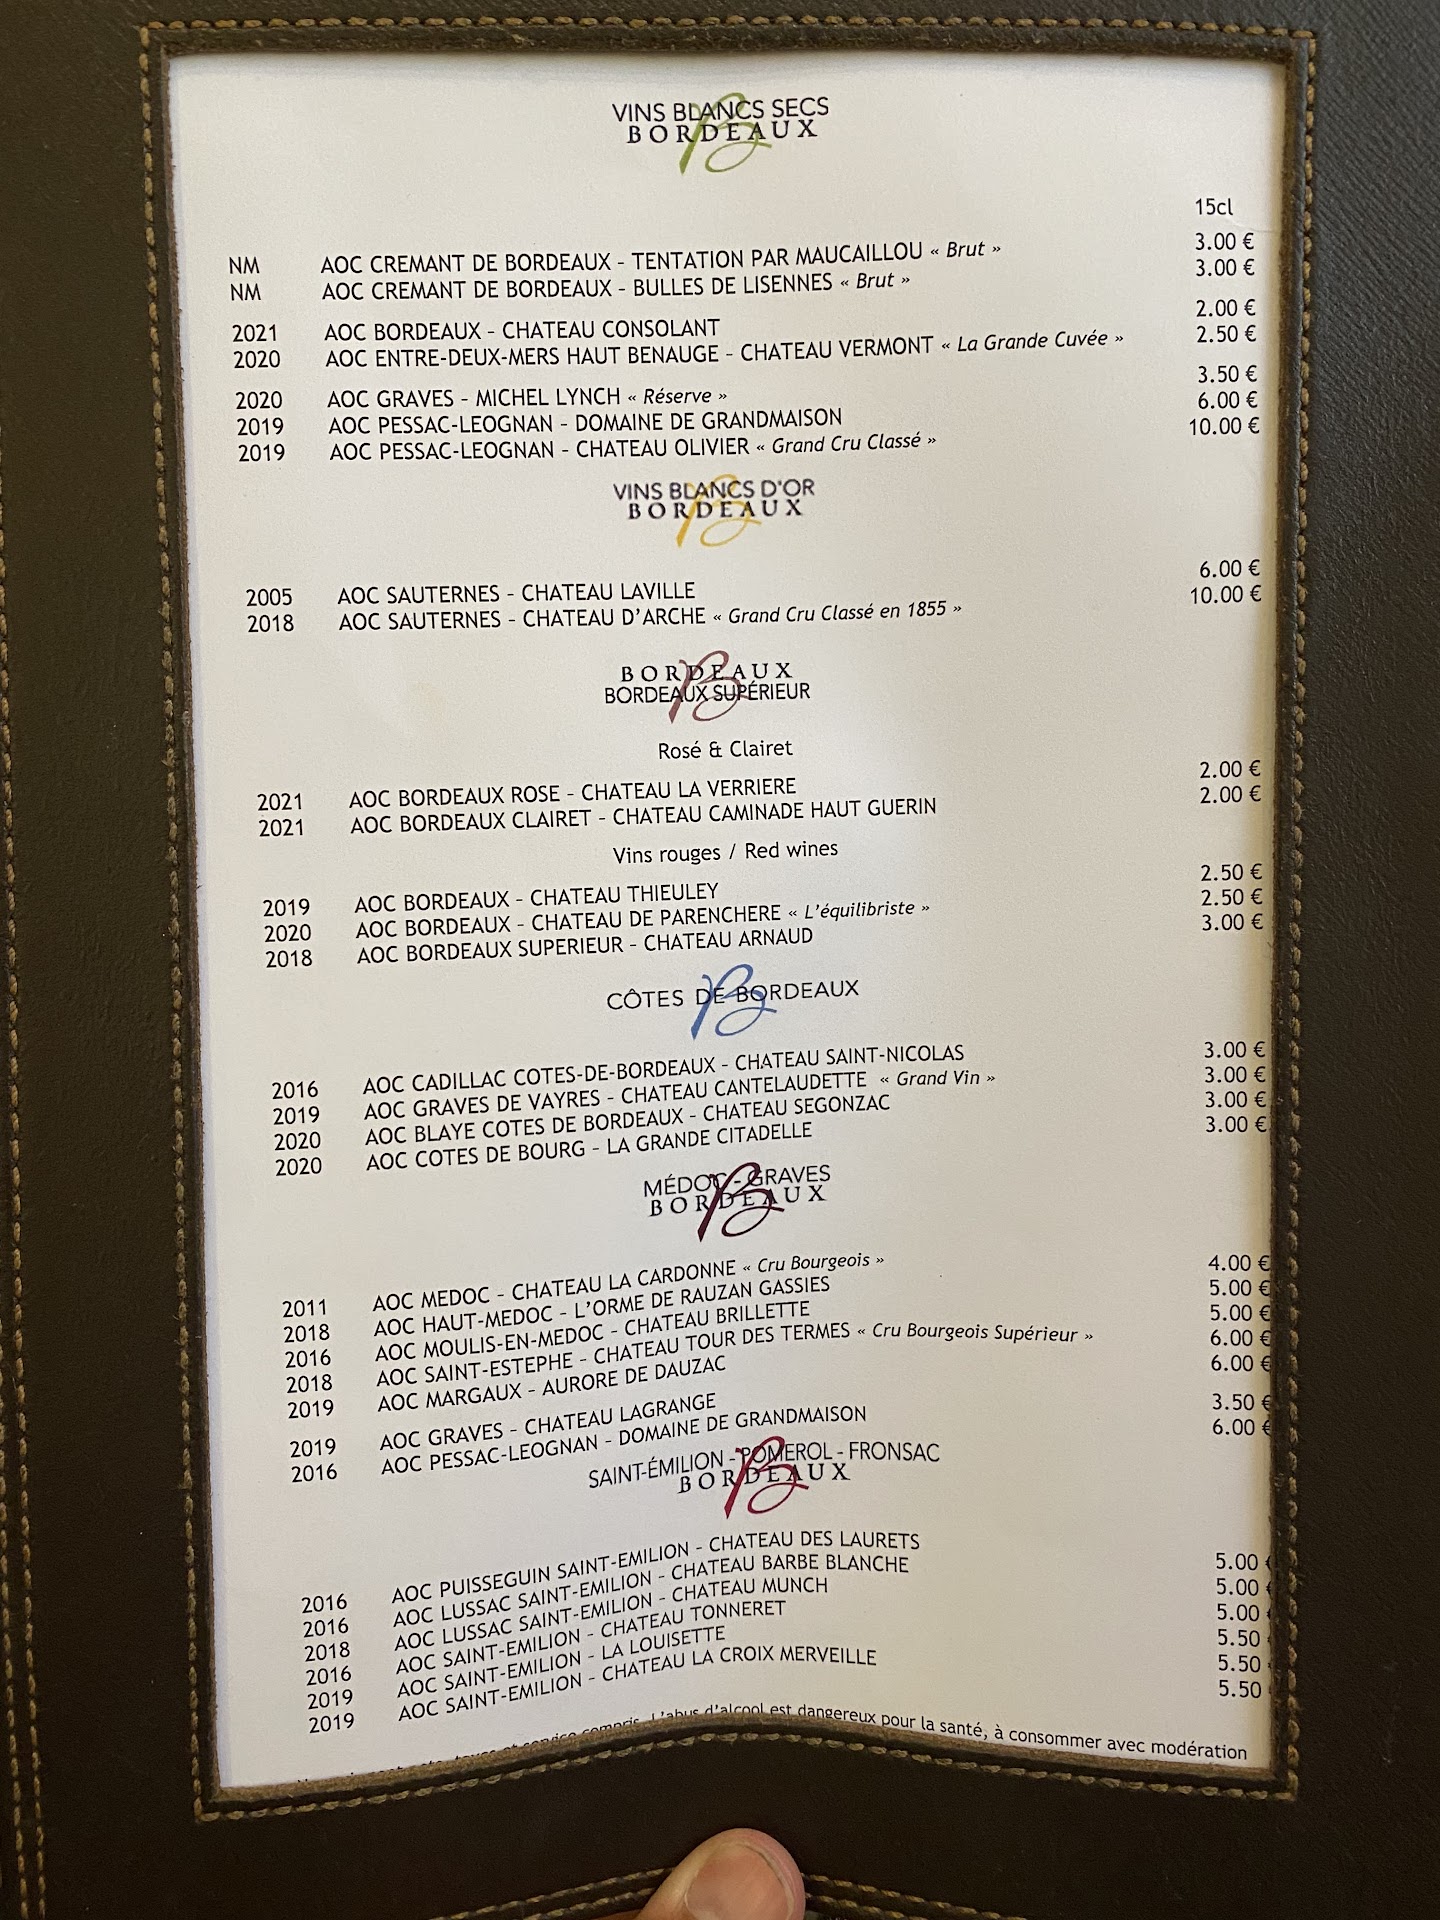 VINS BLANCS SECS
BORDEAUX
15cl
NM AOC CREMANT DE BORDEAUX - TENTATION PAR MAUCAILLOU « Brut » 3.00 €
NM AOC CREMANT DE BORDEAUX - BULLES DE LISENNES « Brut » 3.00 €
2021 AOC BORDEAUX - CHATEAU CONSOLANT 2.00 €
2020 AOC ENTRE-DEUX-MERS HAUT BENAUGE - CHATEAU VERMONT « La Grande Cuvée » 2.50 €
2020 AOC GRAVES - MICHEL LYNCH « Réserve » 3.50 €
2019 AOC PESSAC-LEOGNAN - DOMAINE DE GRANDMAISON 6.00 €
2019 AOC PESSAC-LEOGNAN - CHATEAU OLIVIER « Grand Cru Classé » 10.00 €
VINS BLANCS D'OR
BORDEAUX
2005 AOC SAUTERNES - CHATEAU LAVILLE 6.00 €
2018 AOC SAUTERNES - CHATEAU D'ARCHE « Grand Cru Classé en 1855 » 10.00 €
BORDEAUX
BORDEAUX SUPÉRIEUR
Rosé & Clairet
2021 AOC BORDEAUX ROSE - CHATEAU LA VERRIERE 2.00 €
2021 AOC BORDEAUX CLAIRET - CHATEAU CAMINADE HAUT GUERIN 2.00 €
Vins rouges / Red wines
2019 AOC BORDEAUX - CHATEAU THIEULEY 2.50 €
2020 AOC BORDEAUX - CHATEAU DE PARENCHERE « L'équilibriste » 2.50 €
2018 AOC BORDEAUX SUPERIEUR - CHATEAU ARNAUD 3.00 €
CÔTES DE BORDEAUX
2016 AOC CADILLAC COTES-DE-BORDEAUX - CHATEAU SAINT-NICOLAS 3.00 €
2019 AOC GRAVES DE VAYRES - CHATEAU CANTELAUDETTE « Grand Vin » 3.00 €
2020 AOC BLAYE COTES DE BORDEAUX - CHATEAU SEGONZAC 3.00 €
2020 AOC COTES DE BOURG - LA GRANDE CITADELLE 3.00 €
MÉDOC - GRAVES
BORDEAUX
2011 AOC MEDOC - CHATEAU LA CARDONNE « Cru Bourgeois » 4.00 €
2018 AOC HAUT-MEDOC - L'ORME DE RAUZAN GASSIES 5.00 €
2016 AOC MOULIS-EN-MEDOC - CHATEAU BRILLETTE 5.00 €
2018 AOC SAINT-ESTEPHE - CHATEAU TOUR DES TERMES « Cru Bourgeois Supérieur » 6.00 €
2019 AOC MARGAUX - AURORE DE DAUZAC 6.00 €
2019 AOC GRAVES - CHATEAU LAGRANGE 3.50 €
2016 AOC PESSAC-LEOGNAN - DOMAINE DE GRANDMAISON 6.00 €
SAINT-ÉMILION - POMEROL - FRONSAC
BORDEAUX
2016 AOC PUISSEGUIN SAINT-EMILION - CHATEAU DES LAURETS 5.00 €
2016 AOC LUSSAC SAINT-EMILION - CHATEAU BARBE BLANCHE 5.00
2018 AOC LUSSAC SAINT-EMILION - CHATEAU MUNCH 5.00
2016 AOC SAINT-EMILION - CHATEAU TONNERET 5.50
2019 AOC SAINT-EMILION - LA LOUISETTE 5.50
2019 AOC SAINT-EMILION - CHATEAU LA CROIX MERVEILLE 5.50
compris. L'abus d'alcool est dangereux pour la santé, à consommer avec modération